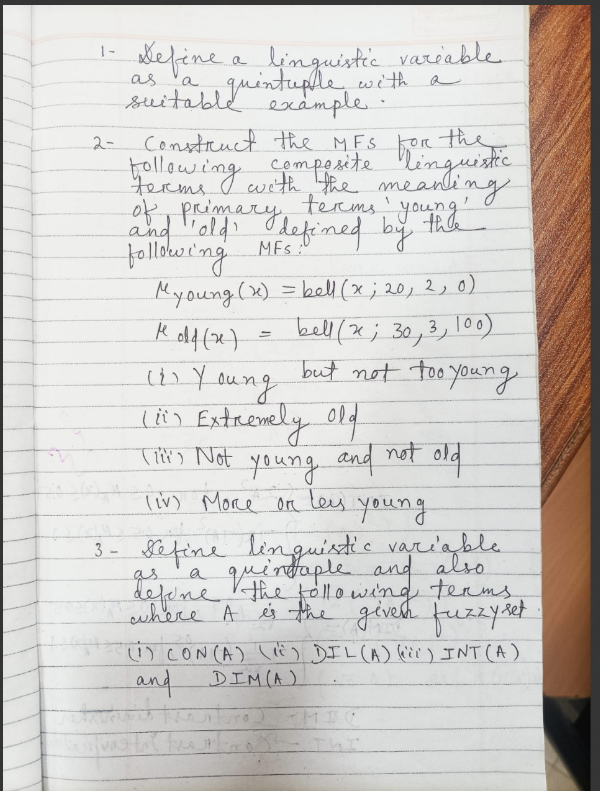 1- Define a linguistic variable
as a quintuple with a
suitable example.
2- Construct the MFs for the
following composite linguistic
terms with the meaning
of primary terms 'young'
and 'old' defined by the
following MFs:
μ young(x) = bell(x; 20, 2, 0)
μ old(x) = bell(x; 30, 3, 100)
(i) Young but not too young
(ii) Extremely old
(iii) Not young and not old
(iv) More or less young
3- Define linguistic variable
as a quintuple and also
define the following terms
where A is the given fuzzy set.
(i) CON(A) (ii) DIL(A) (iii) INT(A)
and DIM(A).